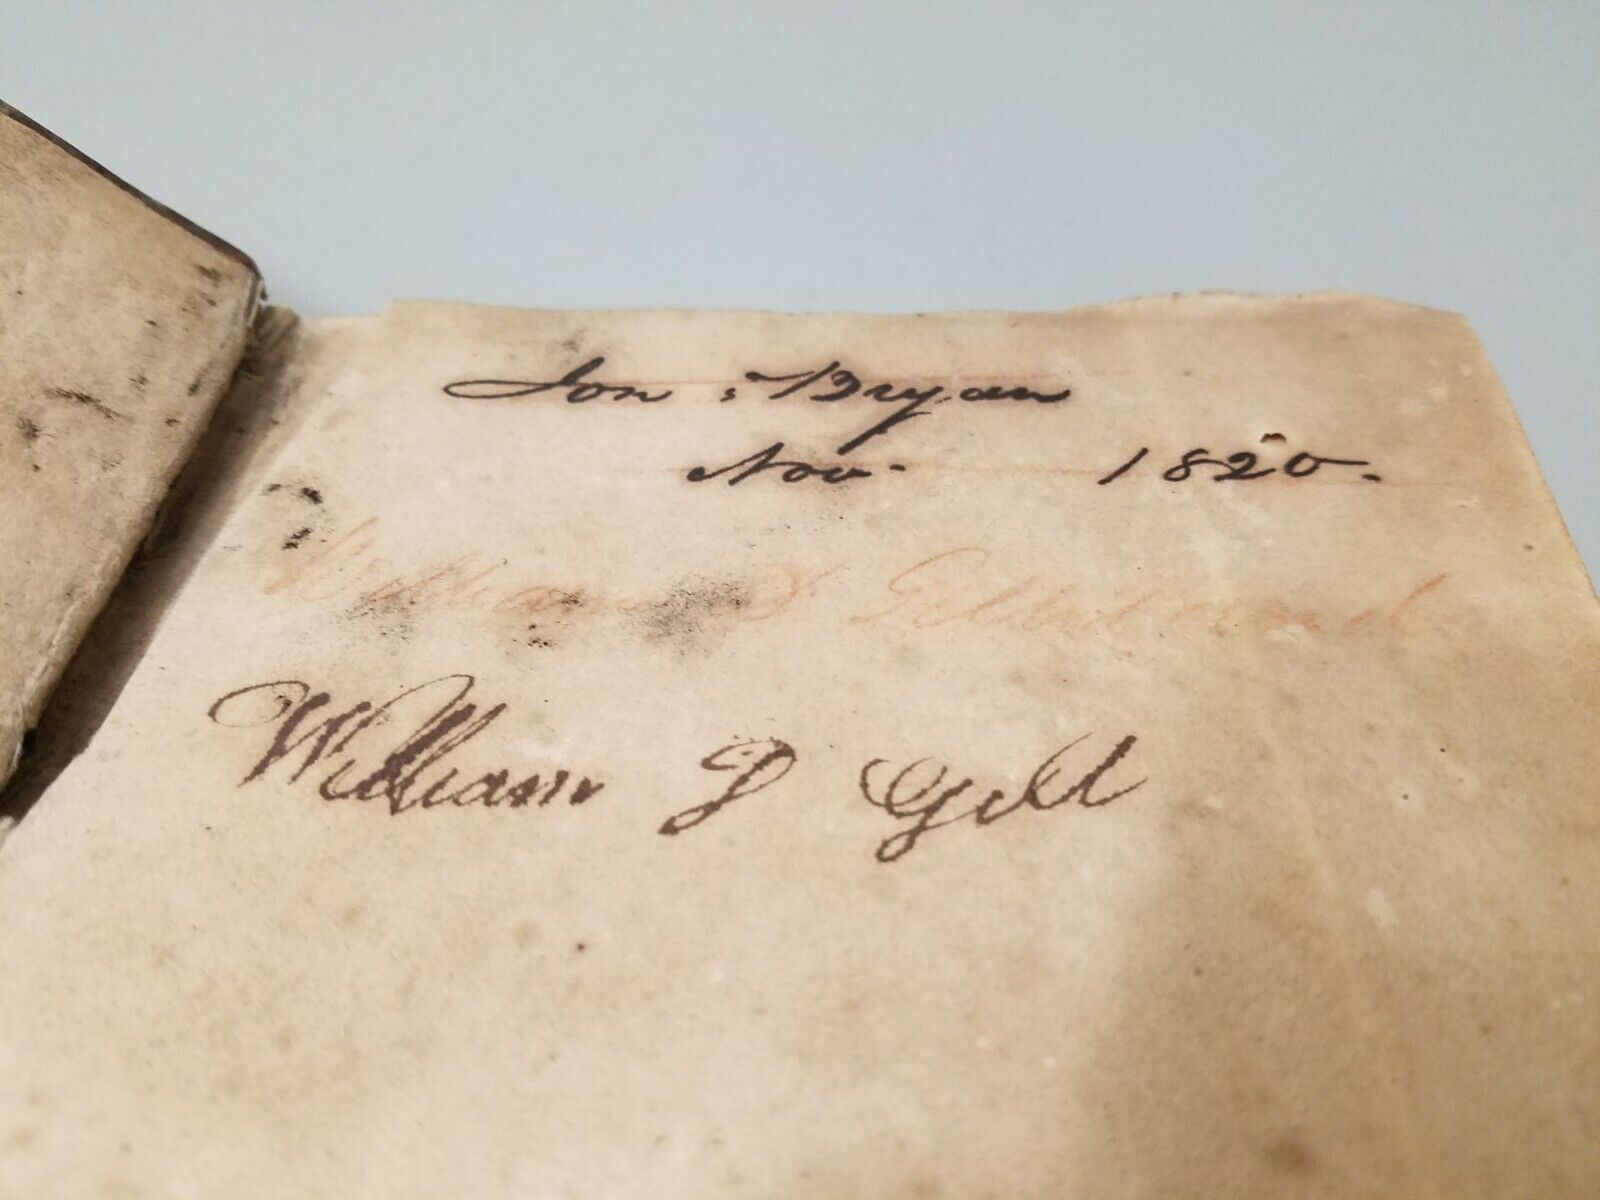 Jon : Bryan
Nov. 1820.
William J
William J Gill